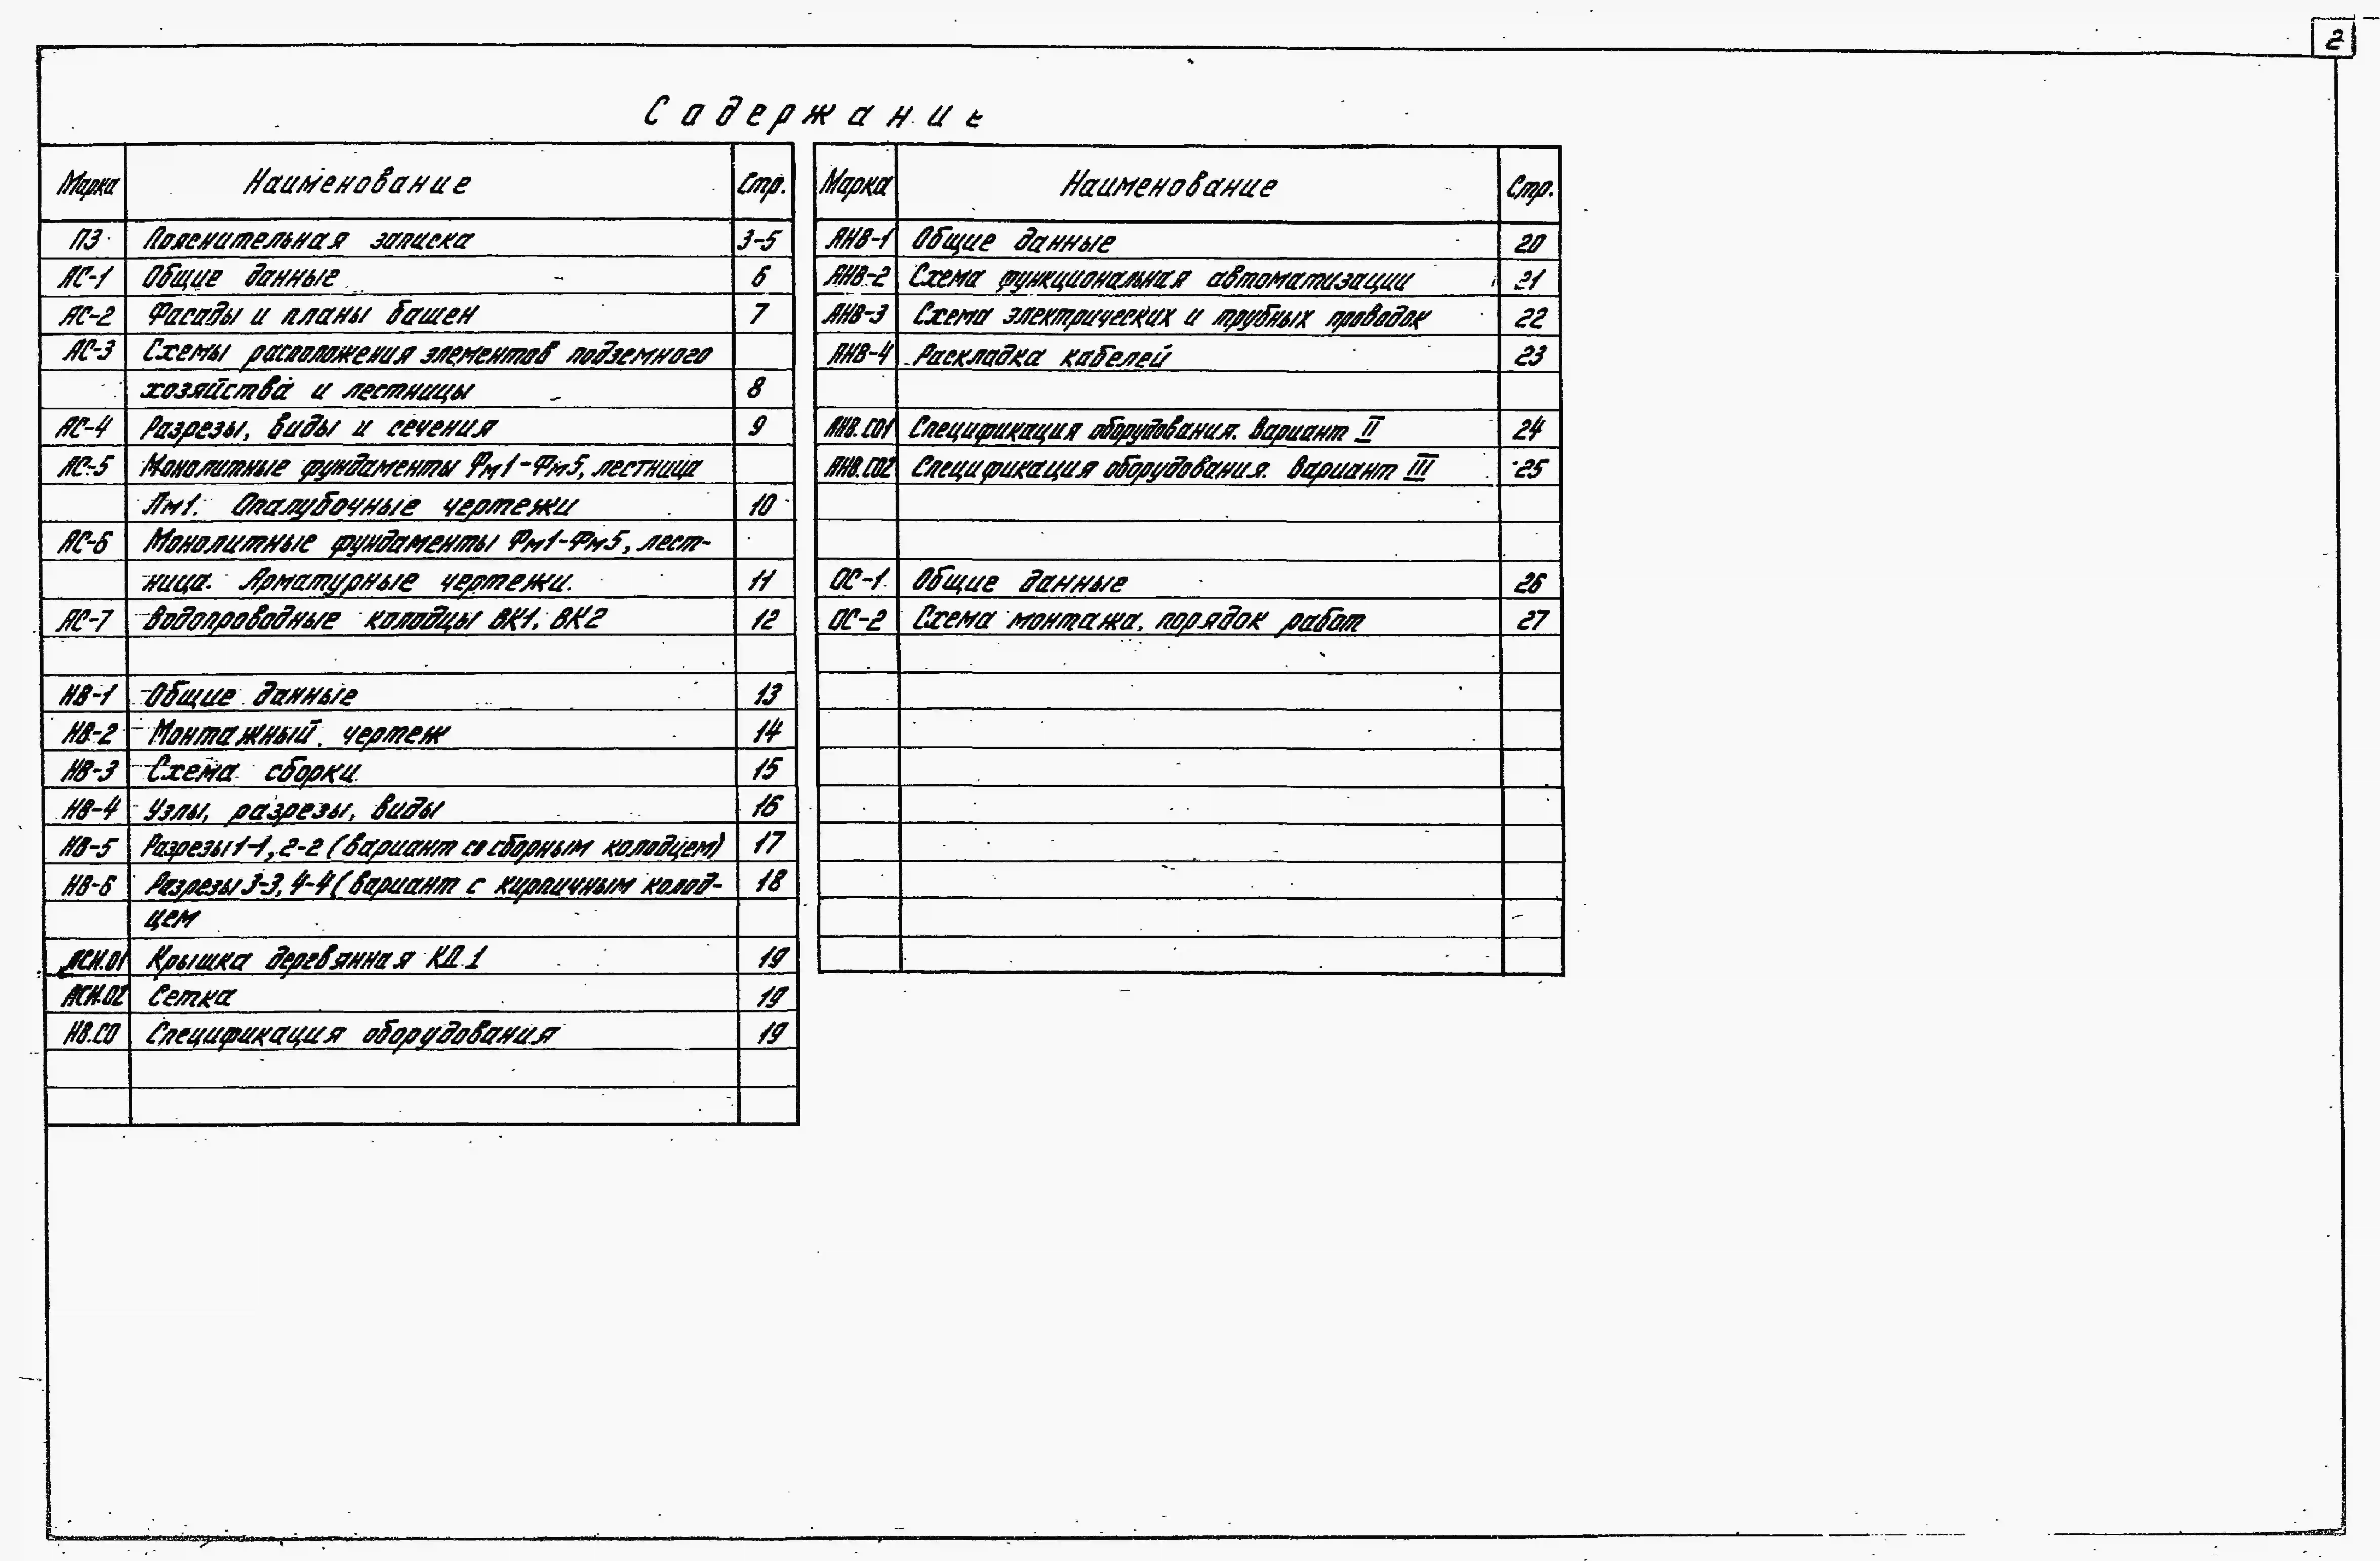 2
Содержание
Марка Наименование Стр.
ПЗ Пояснительная записка 3-5
АС-1 Общие данные 6
АС-2 Фасады и планы башен 7
АС-3 Схемы расположения элементов подземного
хозяйства и лестницы 8
АС-4 Разрезы, виды и сечения 9
АС-5 Монолитные фундаменты Фм1-Фм5, лестница
Лм1. Опалубочные чертежи 10
АС-6 Монолитные фундаменты Фм1-Фм5, лест-
ница. Арматурные чертежи. 11
АС-7 Водопроводные колодцы ВК1, ВК2 12
НВ-1 Общие данные 13
НВ-2 Монтажный чертеж 14
НВ-3 Схема сборки 15
НВ-4 Узлы, разрезы, виды 16
НВ-5 Разрезы 1-1, 2-2 (вариант со сборным колодцем) 17
НВ-6 Разрезы 3-3, 4-4 (вариант с кирпичным колод- 18
цем
АСИ.01 Крышка деревянная КД 1 19
АСИ.02 Сетка 19
НВ.СО Спецификация оборудования 19
Марка Наименование Стр.
АНВ-1 Общие данные 20
АНВ-2 Схема функциональная автоматизации 21
АНВ-3 Схема электрических и трубных проводок 22
АНВ-4 Раскладка кабелей 23
АНВ.СО1 Спецификация оборудования. Вариант II 24
АНВ.СО2 Спецификация оборудования. Вариант III 25
ОС-1 Общие данные 26
ОС-2 Схема монтажа, порядок работ 27